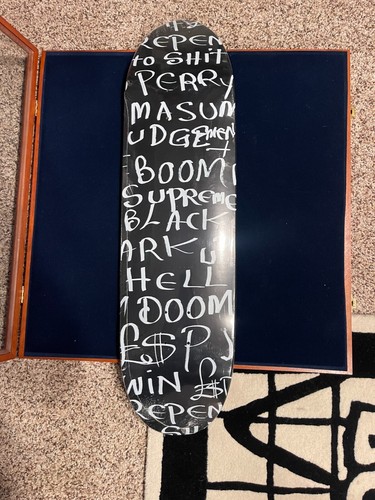 REPEN
to SHIT
PERRY
MASUM
UDGEmEN
T
BOOM
SUPREmE
BLACK
ARK U
HELL
DOOM
£$P
WIN £$P
REPEN